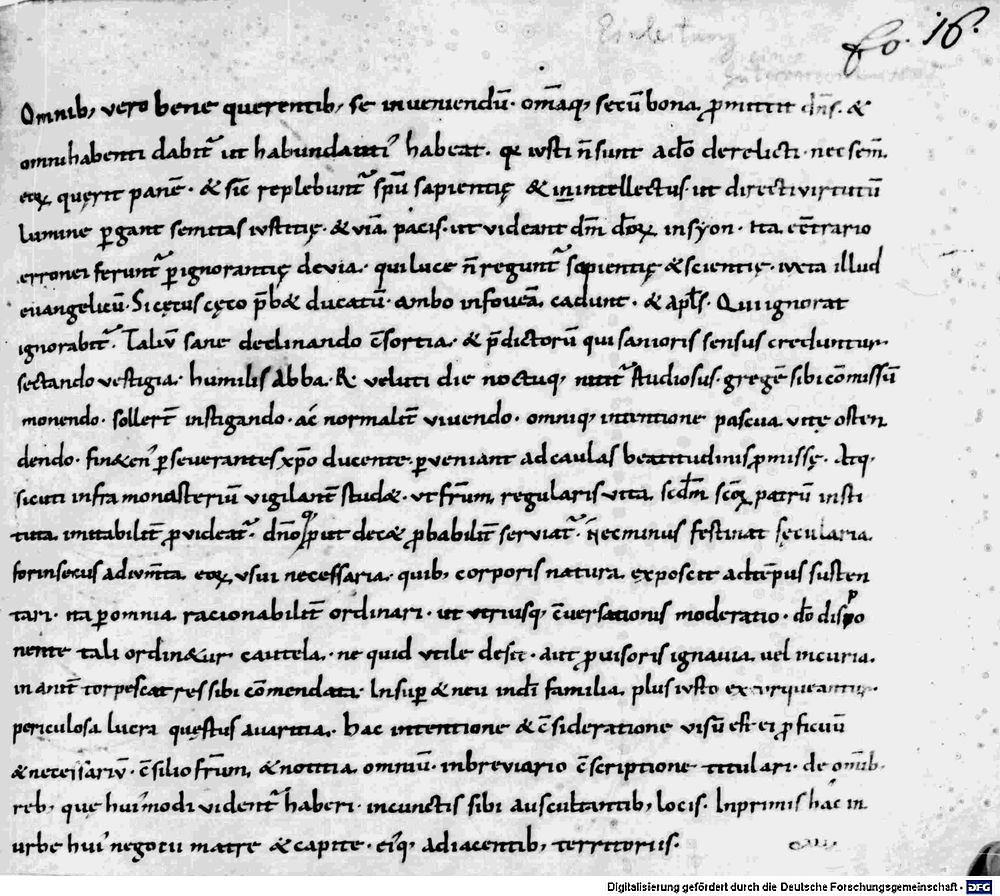 fo. 16.
Einleitung
Omnib; vero bene querentib; se inveniendū. omīaq; secū bona p̄mittit dn̄s. &
omni habenti dabit̃ ut habundanti᾿ habeat. q̃ iusti n̄ sunt ad̄o derelicti. nec sem̄
eoꝝ querit panē. & sic̄ replebunt̃ sp̄u sapientię & in intellectus. ut directi virtutū
lumine ꝑgant semitas iustitię. & viā pacis. ut videant dm̄ d̄oꝝ in syon. Ita c̄trario
erronei ferunt̃ ꝑ ignorantię devia. qui luce n̄ regunt̃ sapientię & scientię. iuxta illud
euangelicū. Si cęcus cęco p̄b& ducatū. ambo in foveā cadunt. & apl̄s. Qui ignorat
ignorabit̃. Taliū sane declinando c̄sortia. & p̄dictorū qui sanioris sensus creduntur
sectando vestigia. humilis Abba. R. veluti die noctuq; nitit̃ studiosus. gregē sibi cōmissū
monendo. sollert̄ instigando. ac̄ normalit̄ vivendo. omniq; intentione pascua vitę osten
dendo. fin&en᾿ ꝑseverantes xp̄o ducente ꝑveniant ad caulas beatitudinis p̄missę. Atq;
sicuti infra monasteriū vigilant̄ stud&. ut fr̄um regularis vita. scd̄m sc̄oꝝ patrū insti
tuta imitabilit̄ ꝓvideat̃. dn̄oq; put dec& ꝓbabilit̄ serviat̃. Nec minus festinat sęcularia
forinsecus adium̄ta eoꝝ usui necessaria. quib; corporis natura exposcit ad tēpus susten
tari. ita ꝑ omnia racionabilit̄ ordinari. ut utriusq; c̄versationis moderatio. d̄o dispo
nente tali ordin&ur cautela. ne quid utile desit. aut ꝓvisoris ignavia vel incuria
in ant̄ torpescat res sibi cōmendata. Insuꝑ & neu ind̄i familia plus iusto exturqueantur
periculosa lucra questus avaritia. hac intentione & c̄sideratione visū est ei ꝓficuū
& necessariū. c̄silio fr̄um & notitia omniū. in breviario c̄scriptione titulari. de om̄ib;
reb; que hui᾿modi vident̃ haberi. in cunctis sibi auscultantib; locis. Inprimis hac in
urbe hui᾿ negotii matre & capite. ei᾿q; adiacentib; territoriis.
Digitalisierung gefördert durch die Deutsche Forschungsgemeinschaft - DFG